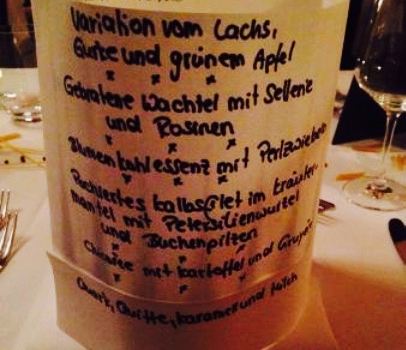 Variation vom Lachs,
Gurke und grünem Apfel
* * *
Gebratene Wachtel mit Sellerie
und Rosinen
* * *
Blumenkohlessenz mit Perlzwiebeln
* * *
Pochiertes Kalbsfilet im Kräuter-
mantel mit Petersilienwurzel
und Buchenpilzen
* * *
Chicorée mit Kartoffel und Gruyère
* * *
Quark, Quitte, Karamell und Milch